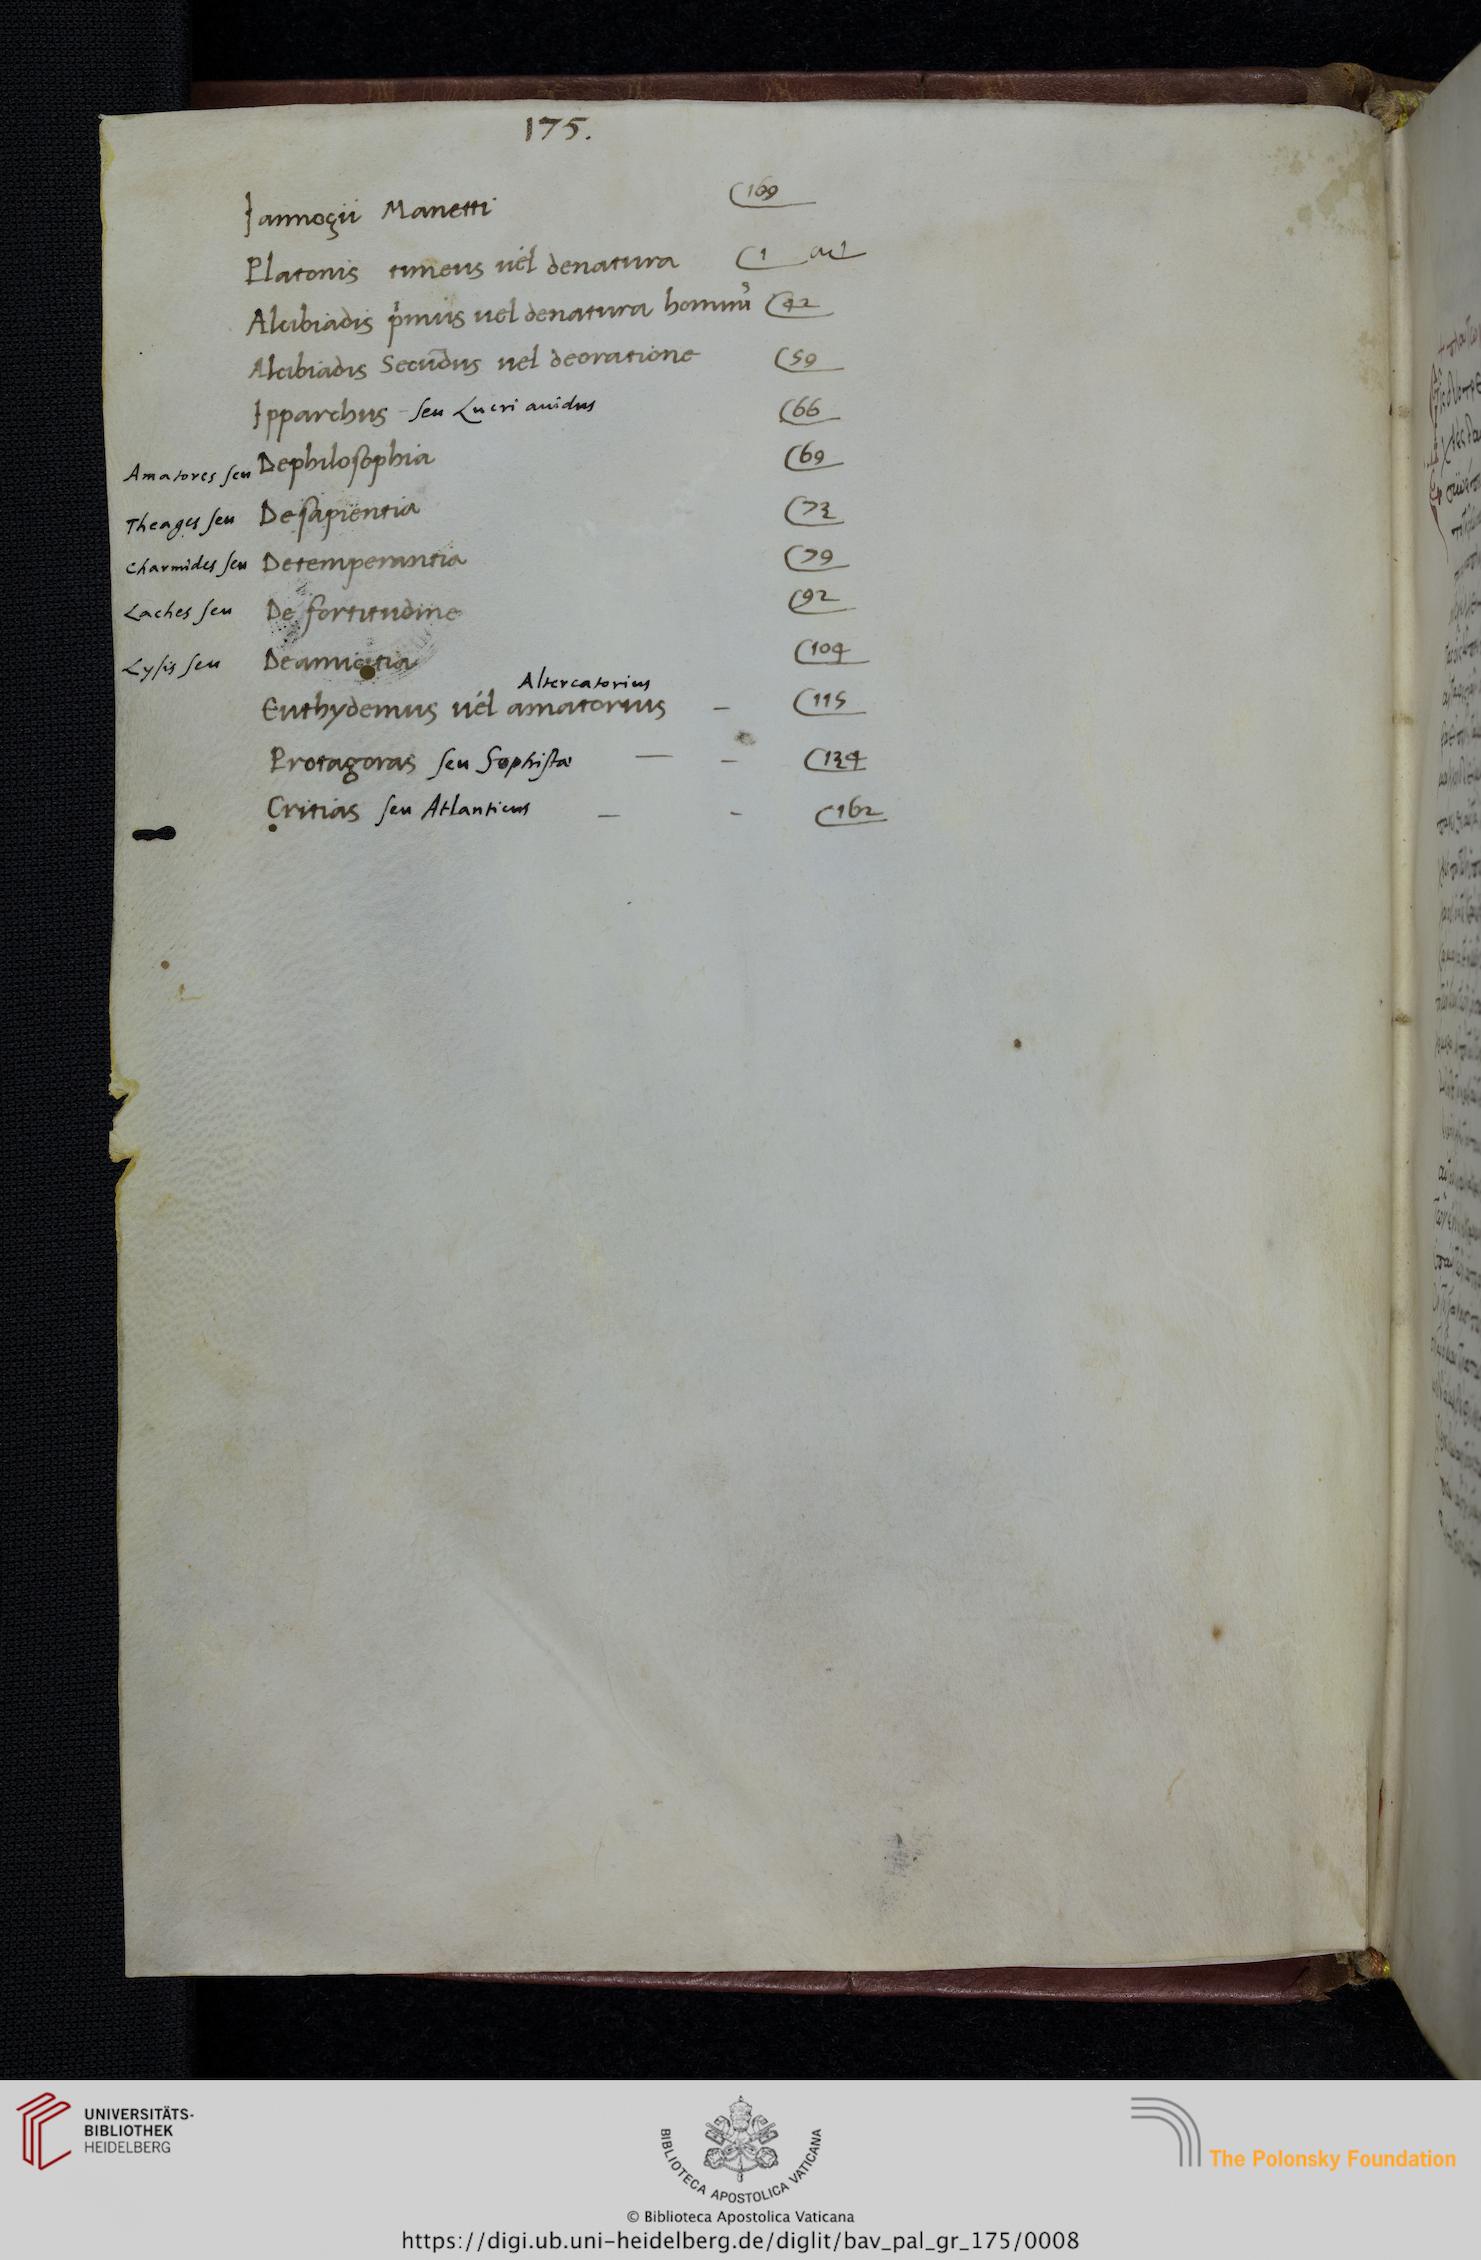 175.
Iannogii Manetti 169
Platonis timeus uel denatura 1
Alcibiadis pͥmus uel denatura hominu᷒ 42
Alcibiadis Secūdus uel deoratione 59
Ipparchus – seu Lucri auidus 66
Amatores seu Dephilosophia 69
Theages seu Desapientia 73
Charmides seu Detemperantia 79
Laches seu De fortitudine 92
Lysis seu Deamicitia 104
Altercatorius
Euthydemus uél amatorius – 115
Protagoras seu Sophistæ — – 134
Critias seu Atlanticus – – 162
UNIVERSITÄTS-
BIBLIOTHEK
HEIDELBERG
BIBLIOTECA APOSTOLICA VATICANA
The Polonsky Foundation
© Biblioteca Apostolica Vaticana
https://digi.ub.uni-heidelberg.de/diglit/bav_pal_gr_175/0008